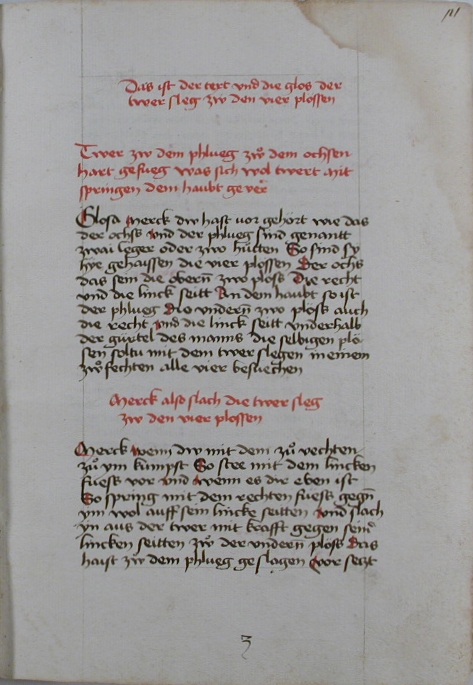 Das ist der text vnd die glos der
twer sleg zw den vier plossen
Twer zw dem phlueg zw° dem ochsen
hart gefueg was sich wol twert mit
springen dem haubt gever
Glosa Merck dw hast vor gehört wie das
der ochs vnd der phlueg sind genantt
zwai leger oder zwo hutten So sind sy
hye gehaissen die vier plossen Der ochs
das sein die obern̄ zwo ploss Die recht
vnd die linck seitt An dem haubt so ist
der phlueg Die vndern̄ zwo ploss auch
die recht vnd die linck seitt vnderhalb
der gürtel des manns die selbigen plo
ssen soltu mit dem twer slegen in einem
zw°fechten alle vier besuechen
Merck also slach die twer sleg
zw den vier plossen
Merck wenn dw mit dem zu° vechten
zu° ym kumpst So stee mit dem lincken
fuess vor vnd wenn es dir eben ist
So spring mit dem rechten fuess gegn̄
ym wol auff sein lincke seitten vnd slach
yn aus der twer mit krafft gegen seinr̄
lincken seitten zw° der vndern̄ ploss Das
haist zw° dem phlueg geslagen Vor setzt
3